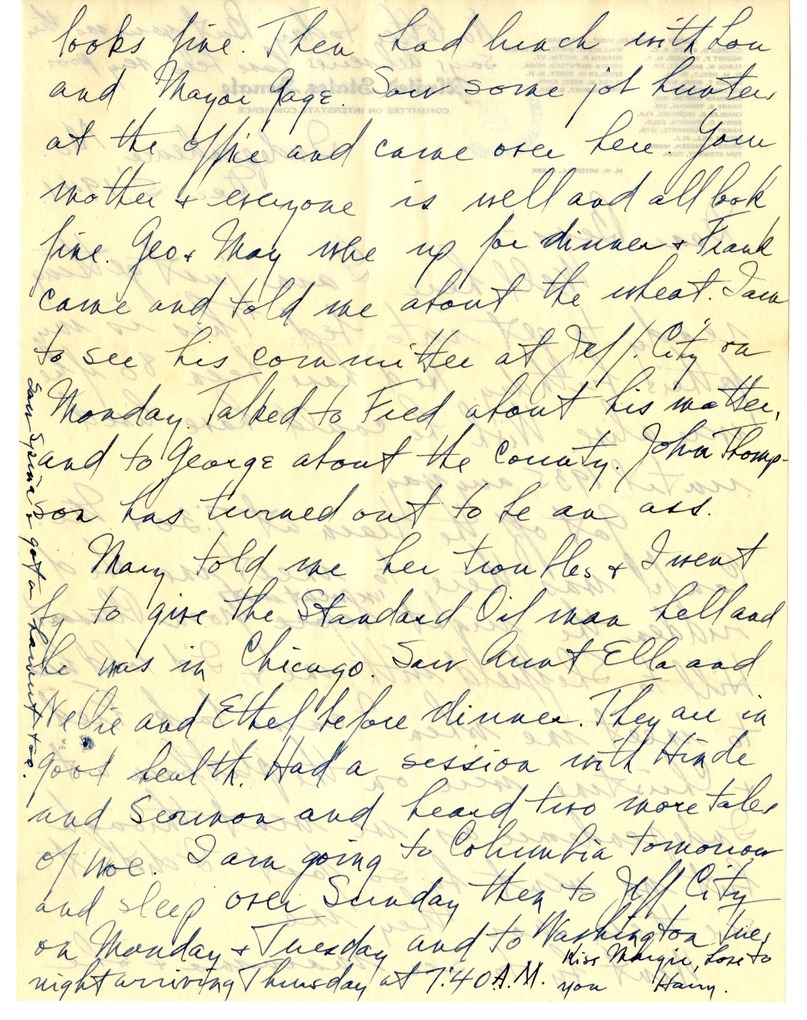 looks fine. Then had lunch with Lou
and Mayor Gage. Saw some job hunters
at the office and came over here. Your
mother & everyone is well and all look
fine. Geo & May were up for dinner & Frank
came and told me about the wheat. I am
to see his committee at Jeff. City on
Monday. Talked to Fred about his mother,
and to George about the county. John Thomp-
son has turned out to be an ass.
Mary told me her troubles & I went
by to give the Standard Oil man hell and
he was in Chicago. Saw Aunt Ella and
Nellie and Ethel before dinner. They are in
good health. Had a session with Hinde
and Sermon and heard two more tales
of woe. I am going to Columbia tomorrow
and sleep over Sunday then to Jeff City
on Monday & Tuesday and to Washington Tues.
night arriving Thursday at 7:40 A.M.
Kiss Margie, love to
you Harry.
Saw Spina & got a haircut too.
COMMITTEE ON INTERSTATE COMMERCE